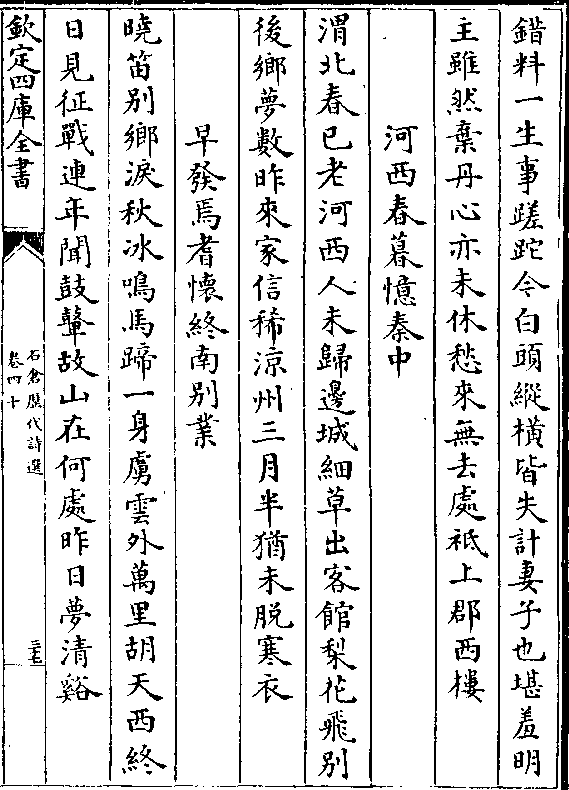 錯料一生事蹉跎今白頭縱橫皆失計妻子也堪羞明
主雖然棄丹心亦未休愁來無去處祗上郡西樓
河西春暮憶秦中
渭北春已老河西人未歸邊城細草出客館梨花飛別
後鄉夢數昨來家信稀涼州三月半猶未脫寒衣
早發焉耆懷終南別業
曉笛別鄉淚秋冰鳴馬蹄一身虜雲外萬里胡天西終
日見征戰連年聞鼓鼙故山在何處昨日夢清谿
欽定四庫全書
石倉歴代詩選
卷四十
三七